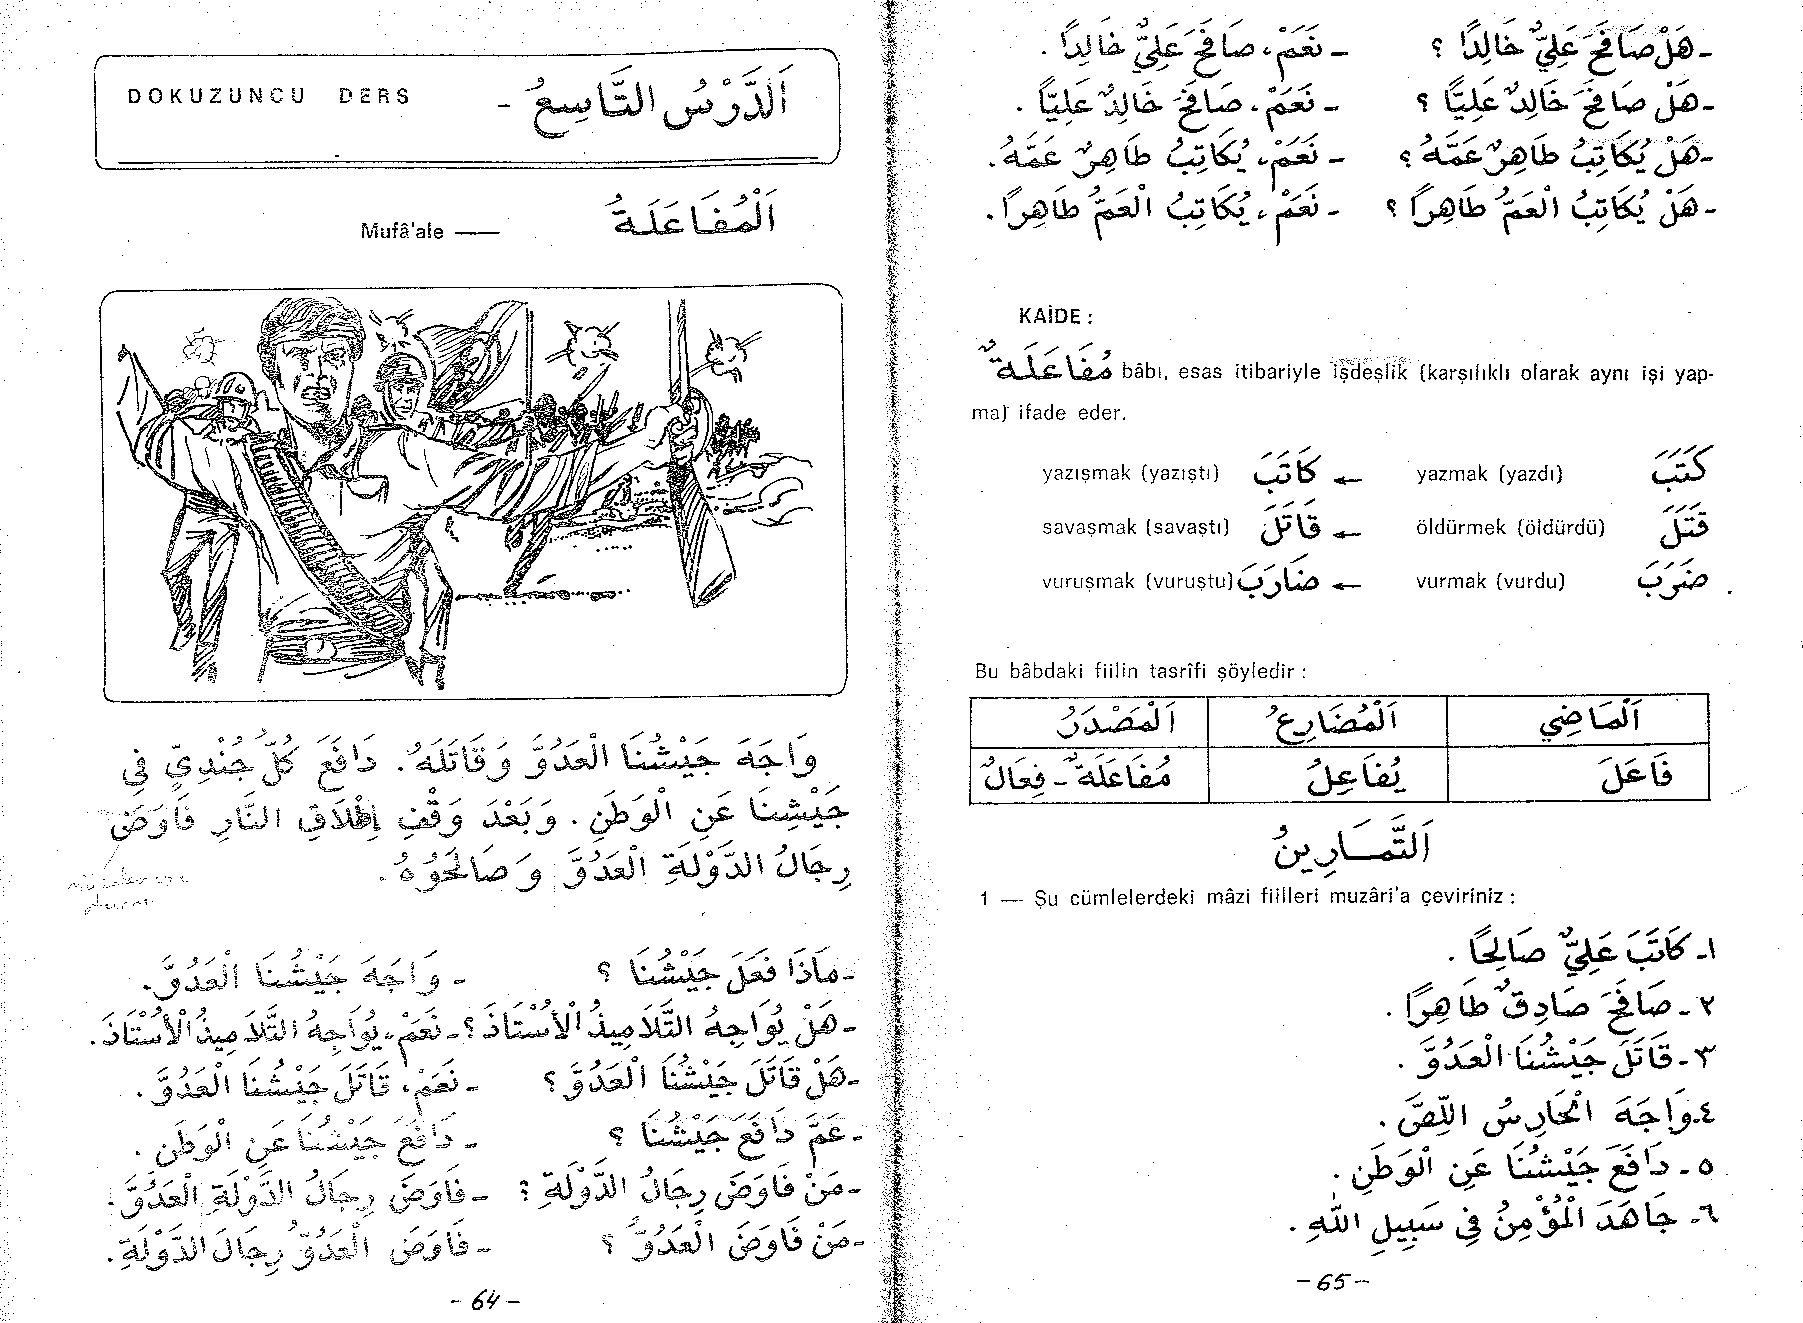 DOKUZUNCU DERS - اَلدَّرْسُ التَّاسِعُ
Mufâ'ale —— اَلْمُفَاعَلَةُ
وَاجَهَ جَيْشُنَا الْعَدُوَّ وَقَاتَلَهُ. دَافَعَ كُلُّ جُنْدِيٍّ فِي
جَيْشِنَا عَنِ الْوَطَنِ. وَبَعْدَ وَقْفِ إِطْلَاقِ النَّارِ فَاوَضَ
رِجَالُ الدَّوْلَةِ الْعَدُوَّ وَصَالَحُوهُ.
-مَاذَا فَعَلَ جَيْشُنَا ؟ - وَاجَهَ جَيْشُنَا الْعَدُوَّ.
-هَلْ يُوَاجِهُ التَّلَامِيذُ الْأُسْتَاذَ؟ -نَعَمْ، يُوَاجِهُ التَّلَامِيذُ الْأُسْتَاذَ.
-هَلْ قَاتَلَ جَيْشُنَا الْعَدُوَّ؟ - نَعَمْ، قَاتَلَ جَيْشُنَا الْعَدُوَّ.
-عَمَّ دَافَعَ جَيْشُنَا ؟ - دَافَعَ جَيْشُنَا عَنِ الْوَطَنِ.
-مَنْ فَاوَضَ رِجَالُ الدَّوْلَةِ ؟ - فَاوَضَ رِجَالُ الدَّوْلَةِ الْعَدُوَّ.
-مَنْ فَاوَضَ الْعَدُوُّ ؟ - فَاوَضَ الْعَدُوُّ رِجَالَ الدَّوْلَةِ.
- 64 -
-هَلْ صَافَحَ عَلِيٌّ خَالِدًا ؟ - نَعَمْ، صَافَحَ عَلِيٌّ خَالِدًا.
-هَلْ صَافَحَ خَالِدٌ عَلِيًّا ؟ - نَعَمْ، صَافَحَ خَالِدٌ عَلِيًّا.
-هَلْ يُكَاتِبُ طَاهِرٌ عَمَّهُ؟ - نَعَمْ، يُكَاتِبُ طَاهِرٌ عَمَّهُ.
-هَلْ يُكَاتِبُ الْعَمُّ طَاهِرًا ؟ - نَعَمْ، يُكَاتِبُ الْعَمُّ طَاهِرًا.
KAİDE :
مُفَاعَلَةٌ bâbı, esas itibariyle işdeşlik (karşılıklı olarak aynı işi yap-
ma) ifade eder.
yazışmak (yazıştı) كَاتَبَ ← yazmak (yazdı) كَتَبَ
savaşmak (savaştı) قَاتَلَ ← öldürmek (öldürdü) قَتَلَ
vuruşmak (vuruştu) ضَارَبَ ← vurmak (vurdu) ضَرَبَ
Bu bâbdaki fiilin tasrîfi şöyledir :
اَلْمَاضِي اَلْمُضَارِعُ اَلْمَصْدَرُ
فَاعَلَ يُفَاعِلُ مُفَاعَلَةٌ - فِعَالٌ
اَلتَّمَارِينُ
1 — Şu cümlelerdeki mâzi fiilleri muzâri'a çeviriniz :
١- كَاتَبَ عَلِيٌّ صَالِحًا.
٢- صَافَحَ صَادِقٌ طَاهِرًا.
٣- قَاتَلَ جَيْشُنَا الْعَدُوَّ.
٤- وَاجَهَ الْحَارِسُ اللِّصَّ.
٥- دَافَعَ جَيْشُنَا عَنِ الْوَطَنِ.
٦- جَاهَدَ الْمُؤْمِنُ فِي سَبِيلِ اللّٰهِ.
- 65 -